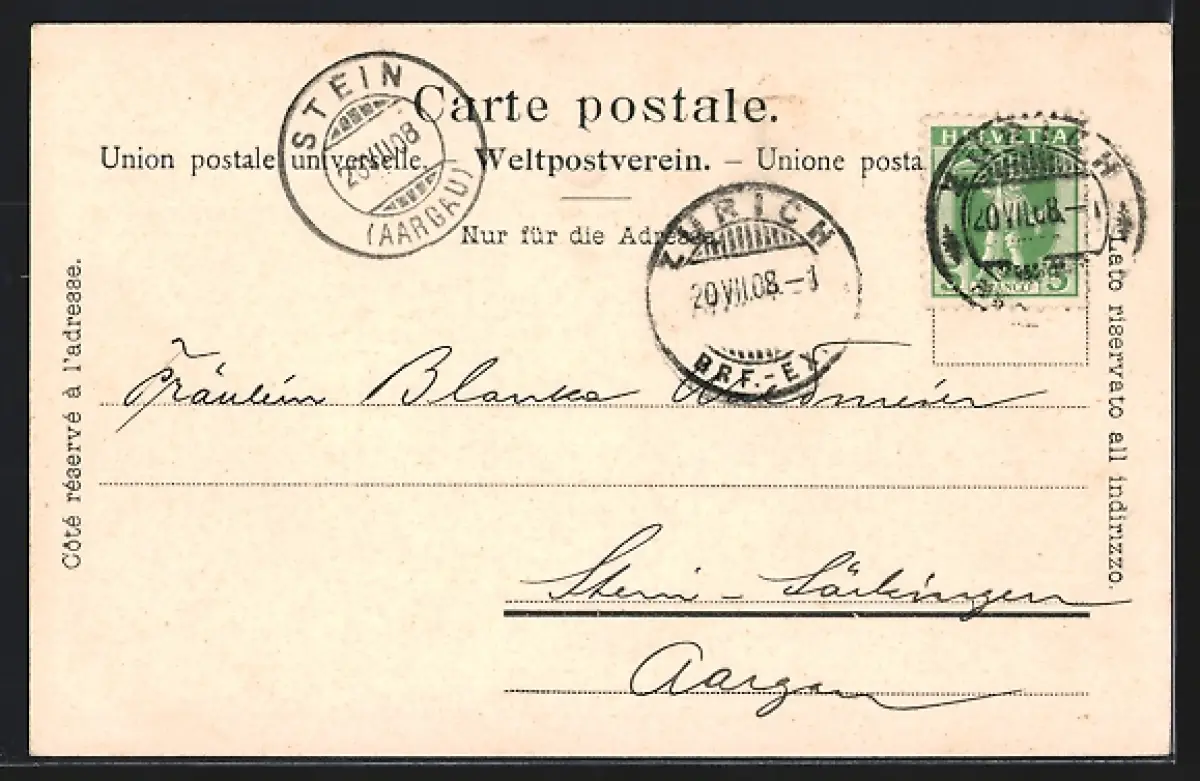 Carte postale.
Union postale universelle. – Weltpostverein. – Unione posta
Nur für die Adresse.
STEIN
20 VII 08
(AARGAU)
ZÜRICH
20 VII.08.–1
BRF.-EX.
HELVETIA
FRANCO
5 5
ZÜRICH
20 VII.08.–1
Côté réservé à l'adresse.
Lato riservato all indirizzo.
Fräulein Blanka
Stein - Säckingen
Aargau